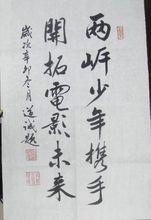 兩岍少年携手
開拓電影未来
歲次辛卯冬月道誠題